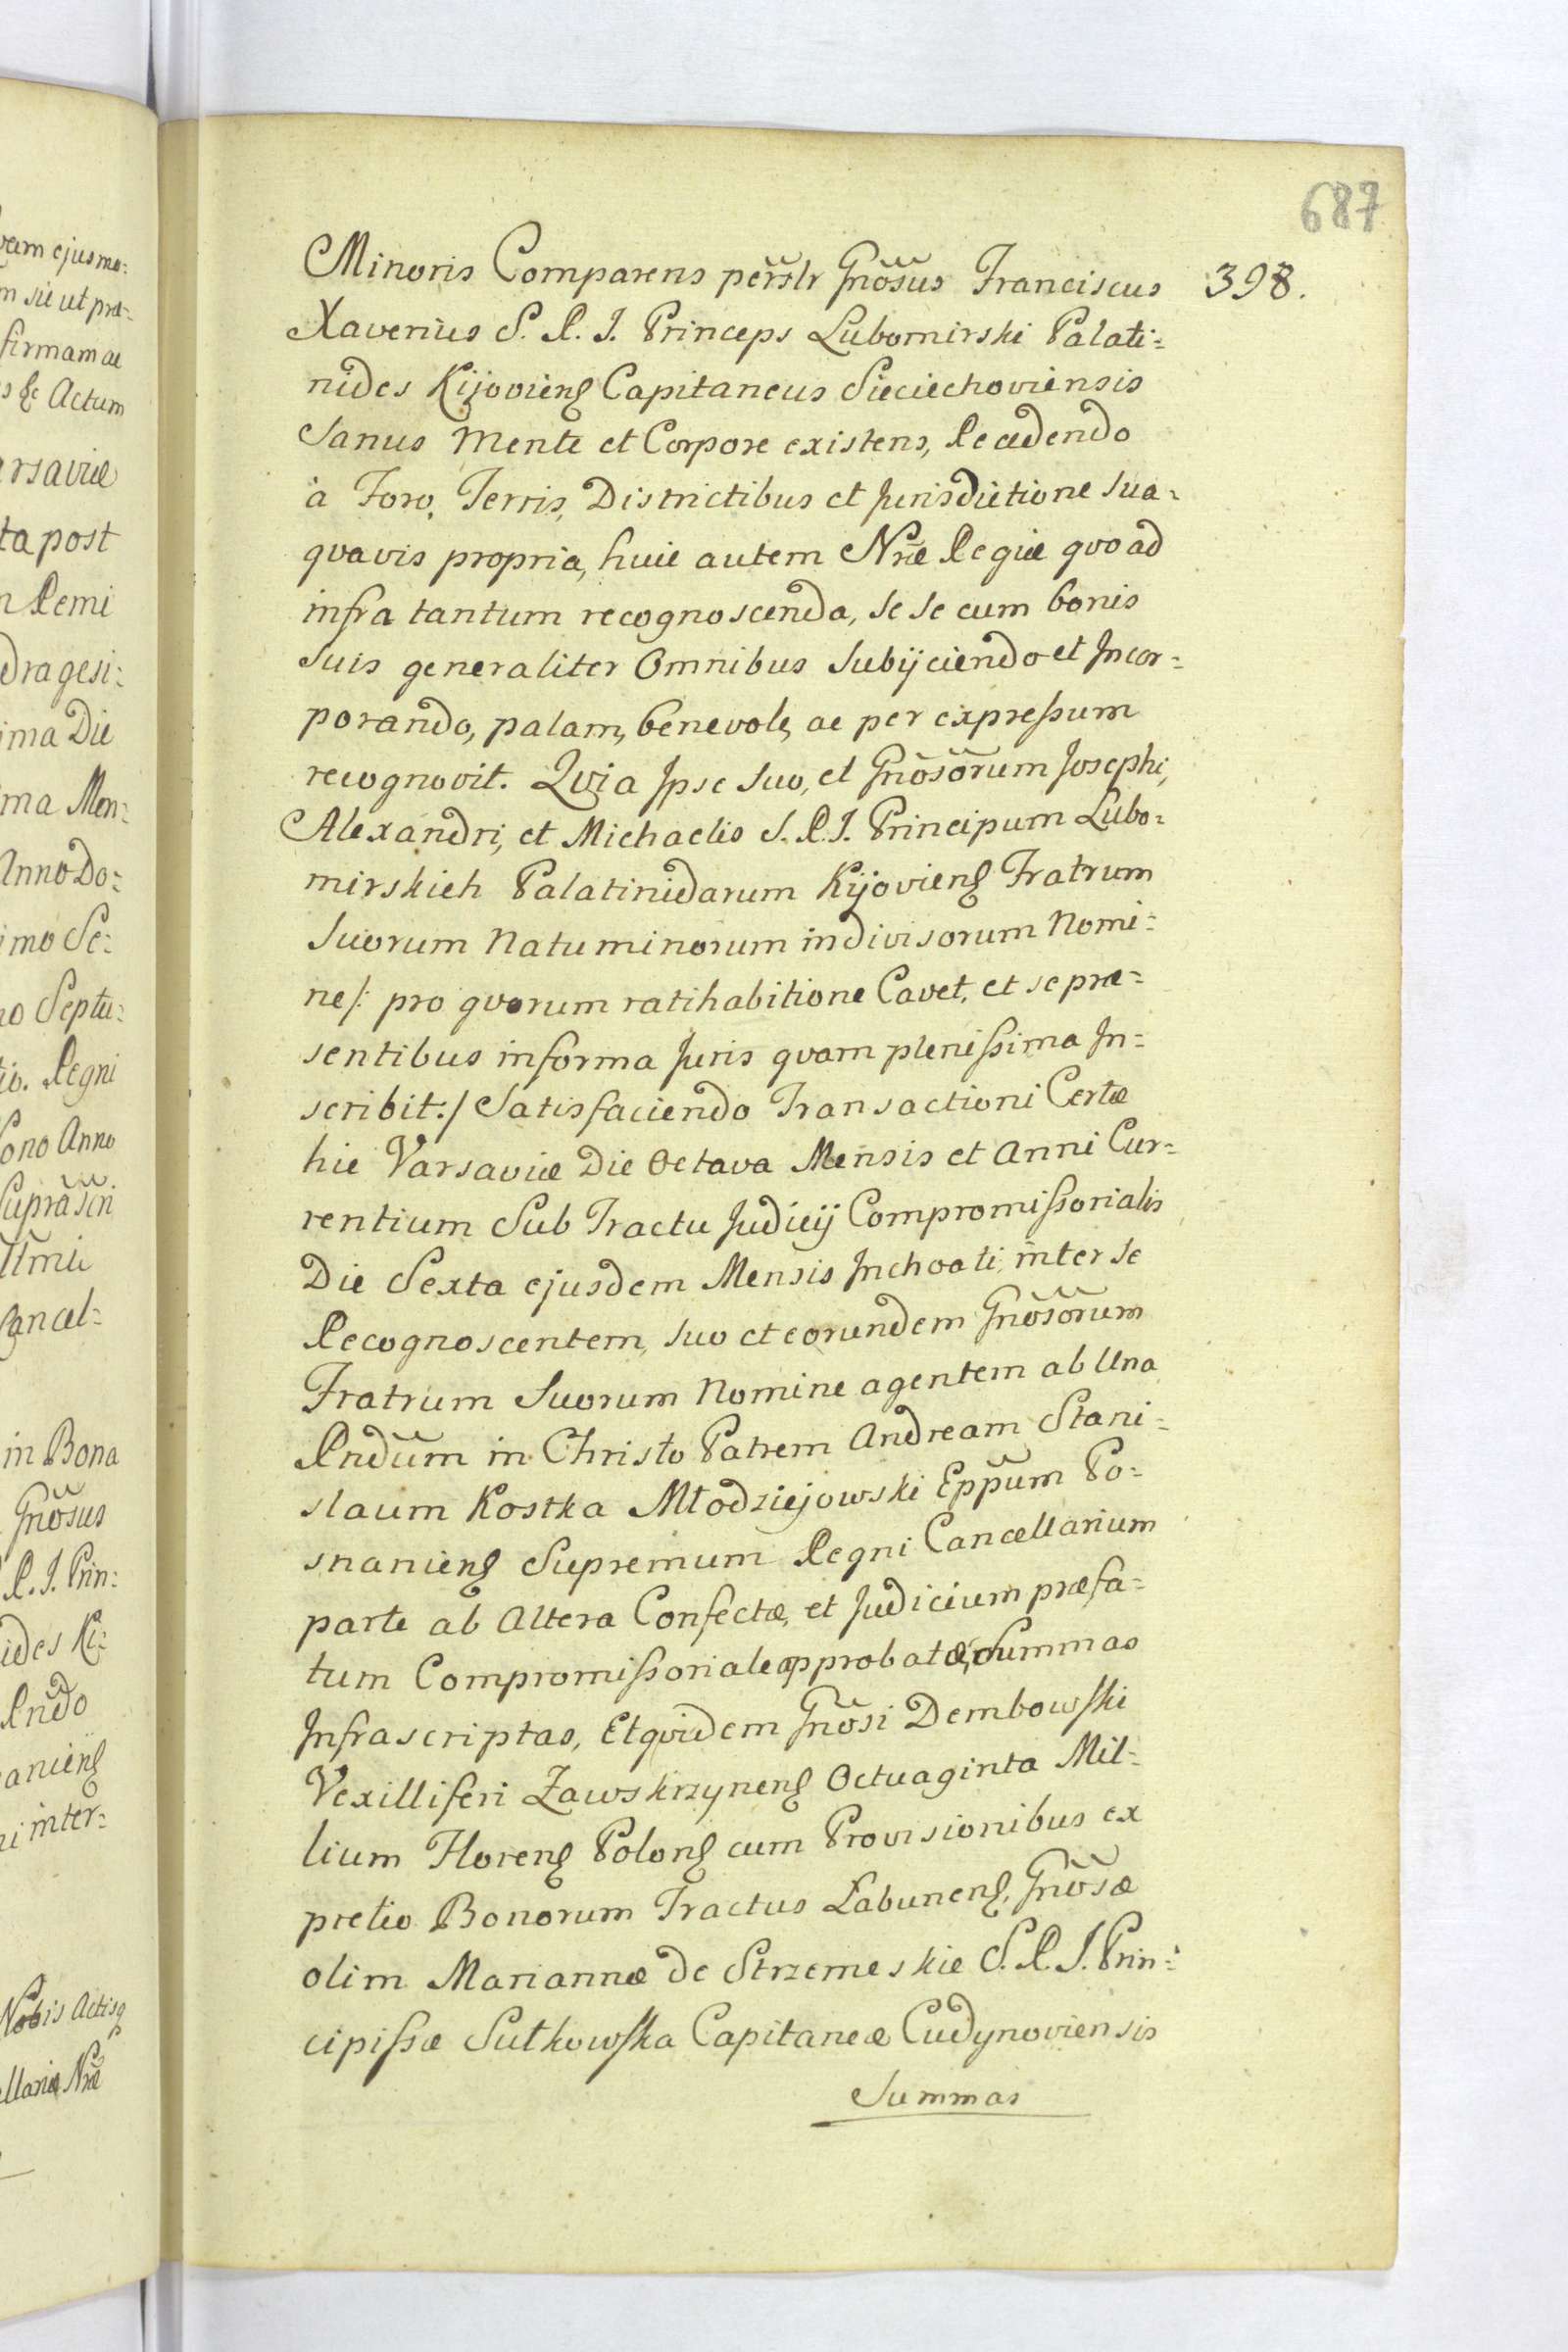 687
398.
Minoris Comparens perslr Gnosus Franciscus
Xaverius S. R. I. Princeps Lubomirski Palati=
nides Kijoviens Capitaneus Sieciechoviensis
Sanus Mente et Corpore existens, Recedendo
à Foro, Terris, Districtibus et Jurisdictione sua=
qvavis propria, huic autem Nræ Regiæ qvoad
infra tantum recognoscenda, se se cum bonis
suis generaliter Omnibus Subijciendo et Incor=
porando, palam, benevole, ac per expressum
recognovit. Qvia Ipse suo, et Gnosorum Josephi,
Alexandri, et Michaelis S. R. I. Principum Lubo=
mirskich Palatinidarum Kijoviens Fratrum
Suorum Natu minorum indivisorum Nomi=
ne /: pro qvorum ratihabitione Cavet, et se præ=
sentibus in forma Juris qvam plenissima In=
scribit :/ Satisfaciendo Transactioni Certæ
hic Varsaviæ Die Octava Mensis et Anni Cur=
rentium Sub Tractu Judicij Compromissorialis
Die Sexta ejusdem Mensis Inchoati, inter se
Recognoscentem, suo et eorundem Gnosorum
Fratrum Suorum Nomine agentem ab Una
Rndum in Christo Patrem Andream Stani=
slaum Kostka Młodziejowski Eppum Po=
snaniens Supremum Regni Cancellarium
parte ab Altera Confectæ, et Judicium præfa=
tum Compromissoriale approbatæ, Summas
Infrascriptas, Et qvidem Gnosi Dembowski
Vexilliferi Zawskrzynens Octuaginta Mil=
lium Florens Polons cum Provisionibus ex
pretio Bonorum Tractus Łabunens, Gnosæ
olim Mariannæ de Strzemeskie S. R. I. Prin=
cipissæ Sułkowska Capitaneæ Cudynoviensis
Summas